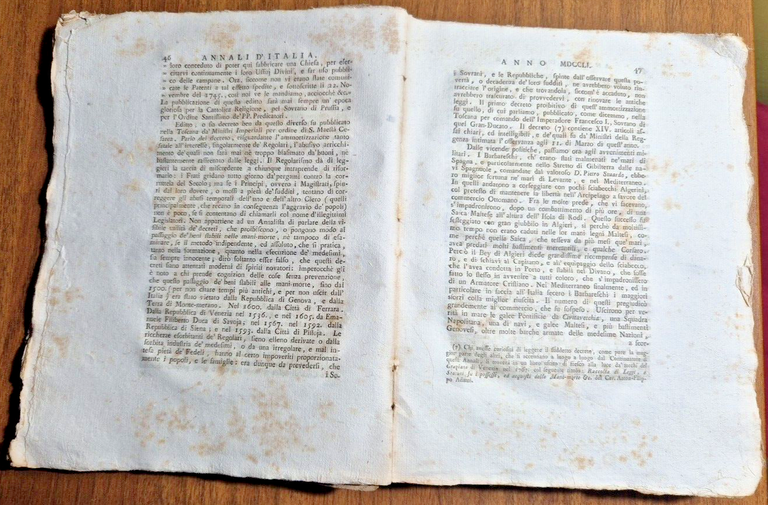 46 ANNALI D'ITALIA.
„ loro conceduto di poter quì fabbricare una Chiesa, per eser-
„ citarvi continuamente i loro Uffizj Divini, e far uso pubbli-
„ co delle campane. Ora, siccome non vi erano state comuni-
„ cate le Patenti a tal effetto spedite, e sottoscritte il 22. No-
„ vembre del 1745. così noi ve le mandiamo, acciocchè &c.
La pubblicazione di questo editto sarà mai sempre un' epoca
gloriosa per la Cattolica Religione, pel Sovrano di Prussia, e
per l' Ordine Santissimo de' PP. Predicatori.
Editto o sia decreto ben da questo diverso fu pubblicato
nella Toscana da' Ministri Imperiali per ordine di S. Maestà Ce-
sarea. Parlo del decreto, riguardante l'ammortizzazione tanto
fatale all' interesse, singolarmente de' Regolari,
buni, nè
bastantemente raffrenato dalle leggi. Il Regolarismo dà di leg-
gieri la taccia di miscredente a chiunque intraprende di rifor-
marlo: i Frati gridano tutto giorno da' pergami contro la cor-
ruttela del Secolo; ma se i Principi, ovvero i Magistrati, spin-
ti dal loro dovere, o mossi a pietà de' sudditi, tentano di cor-
reggere gli abusi temporali dell' uno e dell' altro Clero (quelli
principalmente, che recano in conseguenza l'aggravio de' popoli)
non è poco, se si contentano di chiamarli col nome d' illegittimi
Legislatori. Non appartiene ad un Annalista di parlare della
utilità de' decreti, che proibiscono, o pongono modo al
passaggio de' beni stabili nelle mani-morte, nè tampoco di esa-
minare, se il metodo indipendente, ed assoluto, che si pratica,
tanto nella formazione, quanto nella esecuzione de' medesimi,
sia sempre innocente; dirò soltanto esser falso, che questi de-
creti sono attentati moderni di spiriti novatori: impciocchè gli
è noto a chi prende cognizion delle cose senza prevenzione,
che questo passaggio de' beni stabili alle mani-morte, fino dal
1500. (per non citare tempi più antichi, e per non uscire dall'
Italia) era stato vietato dalla Repubblica di Genova, e dalla
Terra di Monte-
Nel 1600. dalla Città di Ferrara.
Dalla Repubblica di Venezia nel 1536. e nel 1605. da Ema-
nuele Filiberto Duca di Savoja; nel 1567. nel 1592. dalla
Repubblica di Siena; e nel 1583. dalla Città di Pistoja. Le
ricchezze esorbitanti de' Regolari, sieno elleno derivate o dalla
industria de' medesimi, o da una irregolare, e mal in-
tesa pietà de' Fedeli, hanno al certo impoveriti proporzionata-
mente i popoli, e le famiglie: era dunque da prevedersi, che
i So-
ANNO MDCCLI. 47
i Sovrani, e le Repubbliche, spinte dall' osservare questa po-
vertà, o decadenza de' loro sudditi, ne avrebbero voluto rin-
tracciare l'origine, e che trovandola, siccome è accaduto, non
avrebbero tralasciato di provvedervi, con rinovare le antiche
leggi. Il primo decreto proibitivo di quest' ammortizzazione
fu quello di cui parliamo, pubblicato, come dicemmo, nella
Toscana per comando dell' Imperadore Francesco I. Sovrano di
quel Gran-Ducato. Il decreto (7) contiene XIV. articoli as-
sai chiari, ed intelligibili, e de' quali fu da' Ministri della Reg-
genza intimata l'osservanza agli 11. di Marzo di quest' anno.
Dalle vicende politiche, passiamo ora agli avvenimenti mi-
litari. I Barbareschi, ch' erano stati malmenati ne' mari di
Spagna, e particolarmente nello Stretto di Gibilterra dalle na-
vi Spagnuole, comandate dal valoroso D. Pietro Stuardo, ebbe-
ro miglior fortuna ne' mari di Levante, e nel Mediterraneo.
In quelli andarono a corseggiare con pochi sciabecchi Algerini,
col pretesto di mantenere la libertà nell' Arcipelago a favore del
commercio Ottomano. Fra le molte prede, che vi facevano,
s' impadronirono, dopo un combattimento crudele, di una
Saica Maltese all' altura dell' Isola di Rodi. Questo successo fu
festeggiato con gran giubbilo in Algieri, sì perchè da moltissi-
mo tempo non erano caduti nelle loro mani legni Maltesi, co-
me perchè questa Saica, che teneva da più mesi que' mari,
aveva predati molti bastimenti mercantili, e qualche Corsaro.
Però il Bey di Algieri diede grandissime ricompense di dana-
ro, e di schiavi al Capitano, e all' equipaggio dello sciabecco,
che l'aveva condotta in Porto, e stabilì nel Divano, che fosse
fatto lo stesso in avvenire a tutti coloro, che s' impadronissero
di un Armatore Cristiano. Nel Mediterraneo finalmente, ed in
particolare in faccia all' Italia fecero i Barbareschi i maggiori
sforzi colla miglior riuscita. Il numero di questi pregiudicò
grandemente al commercio, che fu sospeso. Uscirono per ve-
rità in mare le galee Pontificie di Civitavecchia, una Squadra
Napolitana, una di navi, e galee Maltesi, e più bastimenti
Genovesi, oltre molte barche armate delle medesime Nazioni,
a scor-
(7) Chi avesse curiosità di leggere il suddetto decreto, come pure la mag-
gior parte degli altri, che si accennano a luogo a luogo dal Continuatore di
questi Annali,